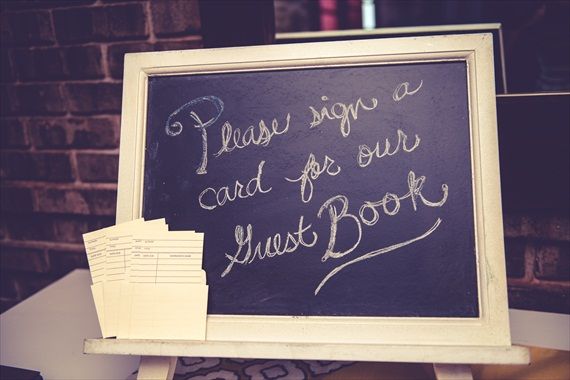 Please sign a
card for our
Guest Book